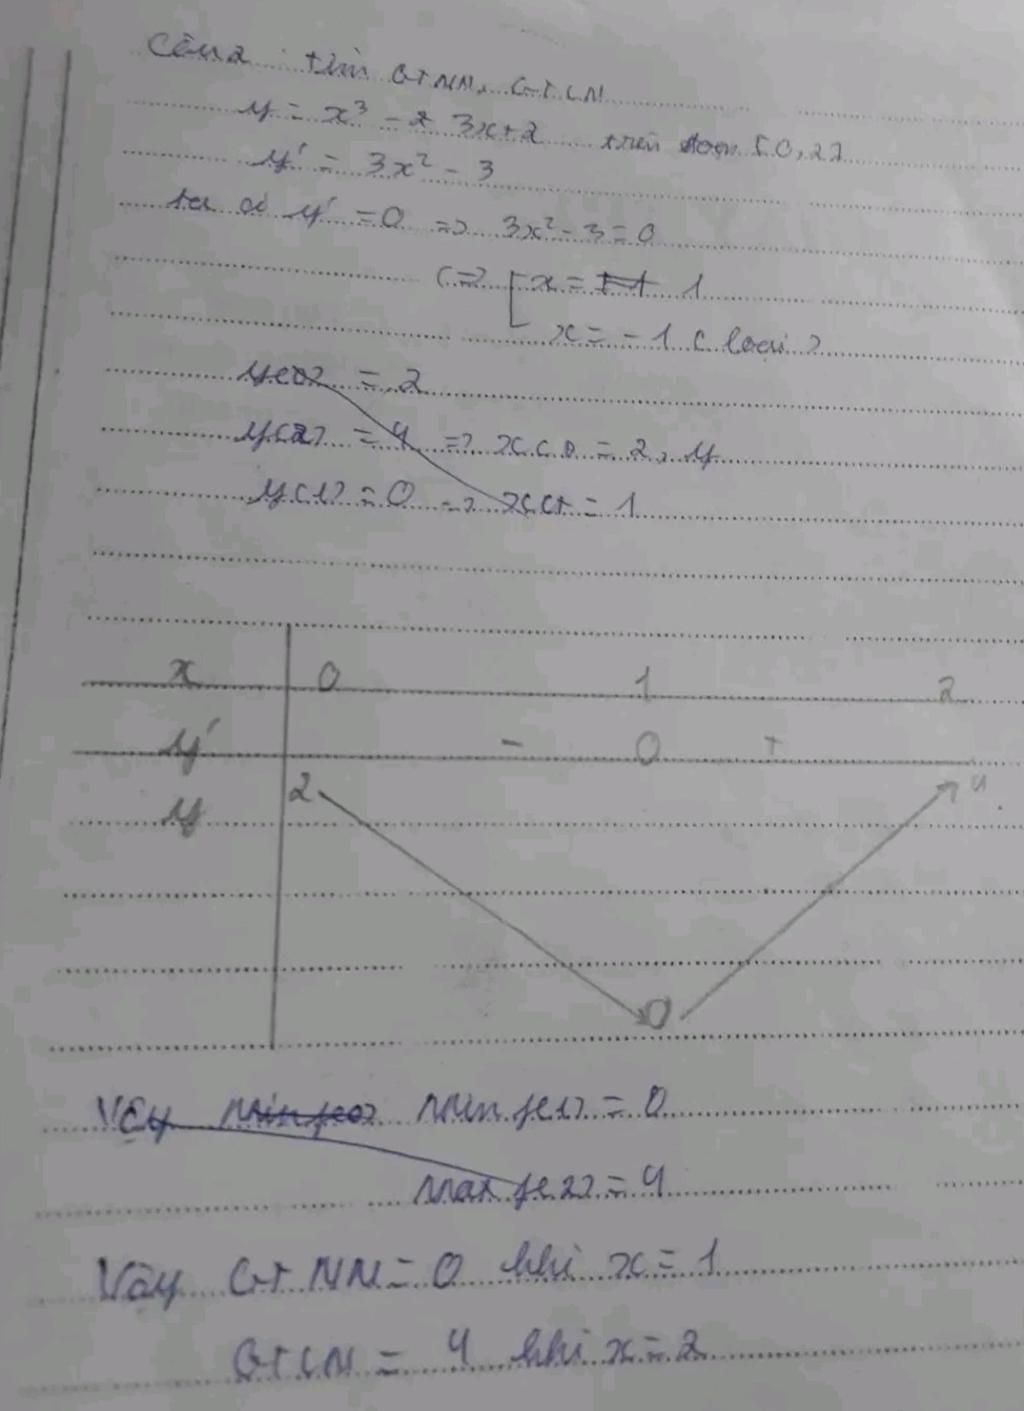 Câu 2 tìm GTNN, GTLN
y = x³ - 3x + 2 trên đoạn [0, 2]
y' = 3x² - 3
ta có y' = 0 => 3x² - 3 = 0
<=> [ x = 1
x = -1 (loại)
y(0) = 2
y(2) = 4 => xCĐ = 2, y
y(1) = 0 -> xCT = 1
x 0 1 2
y' - 0 +
y 2 0 4
Vậy Min f(0) Min f(1) = 0
Max f(2) = 4
Vậy GTNN = 0 khi x = 1
GTLN = 4 khi x = 2